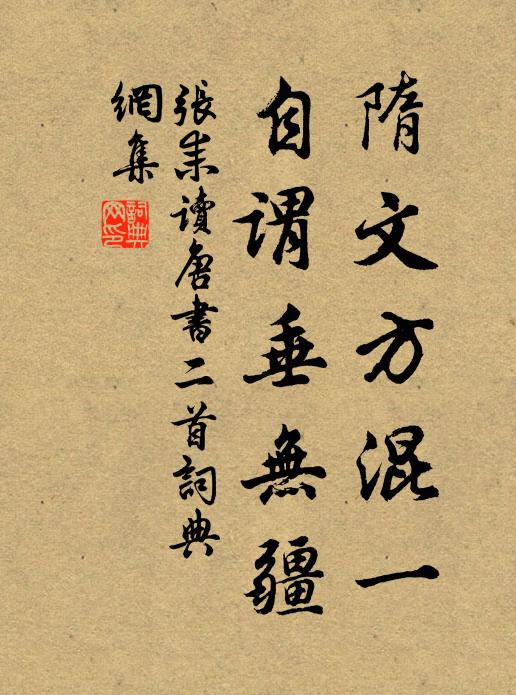 隋文方混一
自謂垂無疆
張耒讀唐書二首詞典
網集
詞典
网印